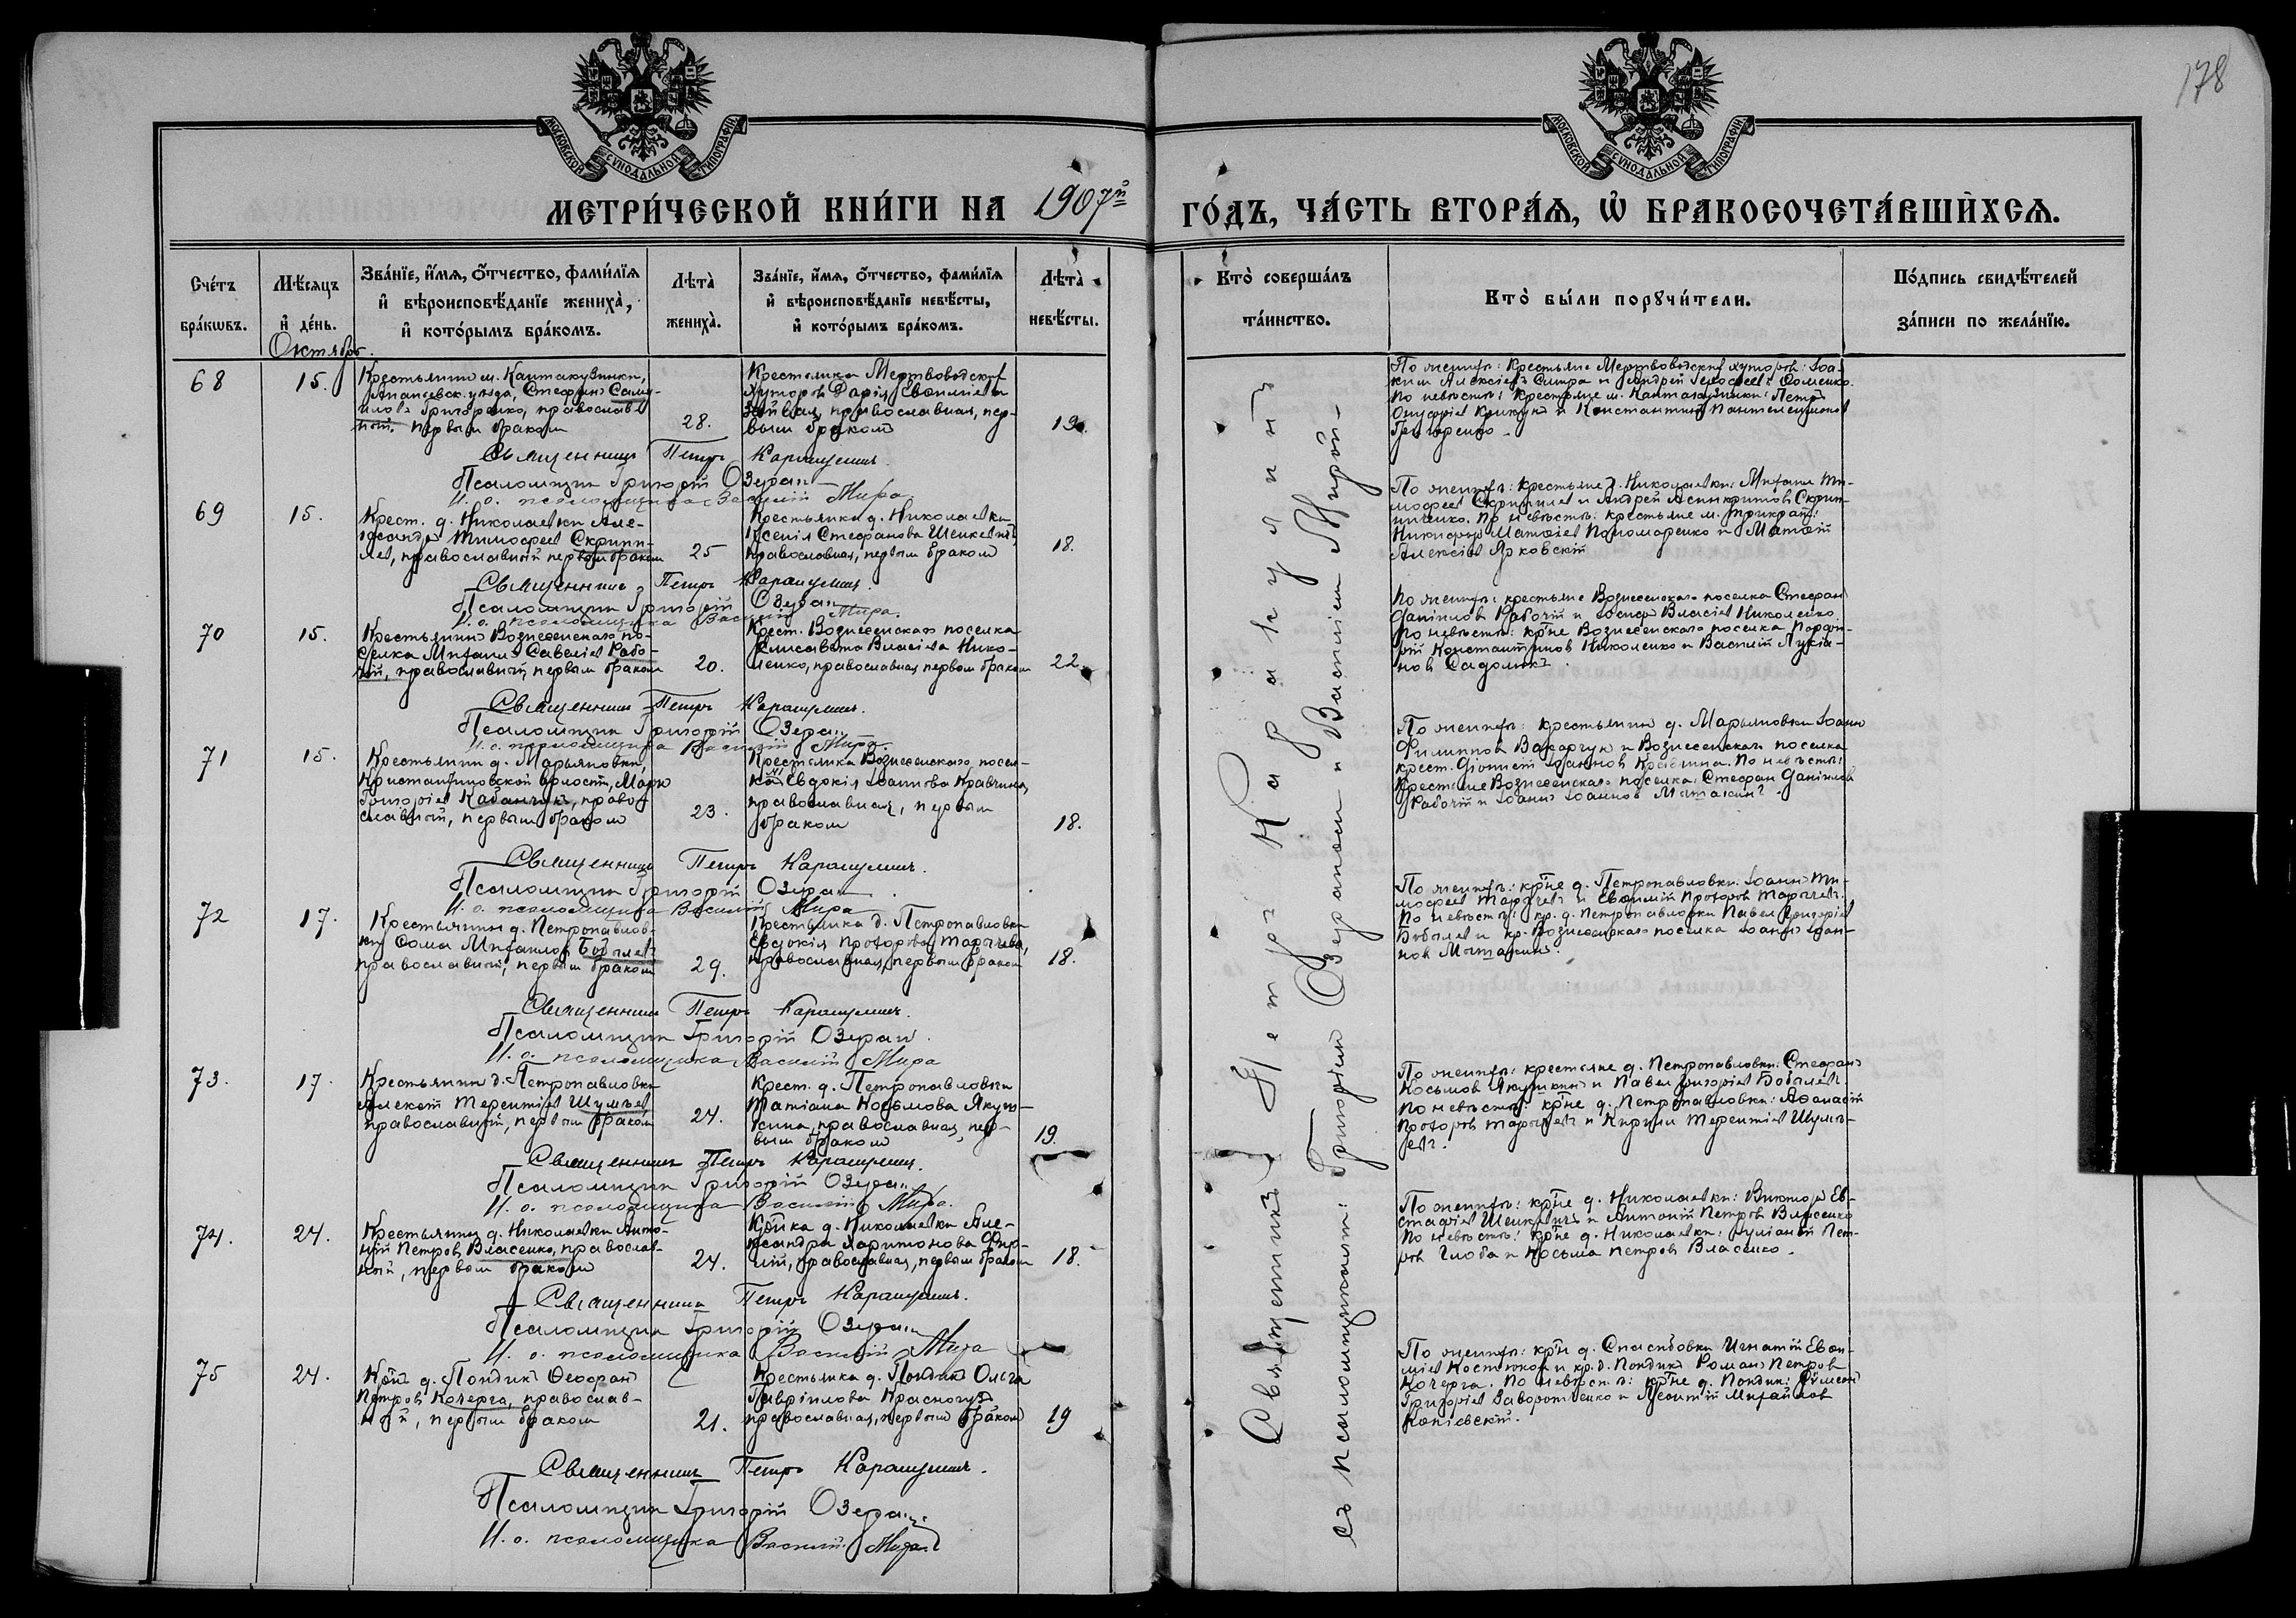 178
МОСКОВСКОЙ СѴНОДАЛЬНОЙ ТИПОГРАФІИ
МОСКОВСКОЙ СѴНОДАЛЬНОЙ ТИПОГРАФІИ
МЕТРИ́ЧЕСКОЙ КНИ́ГИ НА 1907й
ГО́ДЪ, ЧА́СТЬ ВТОРА́Ѧ, Ѡ҆ БРАКОСОЧЕТА́ВШИХСѦ.
Сче́тъ бра́кѡвъ.
Мѣ́сѧцъ и҆ де́нь.
Зва́нїе, и҆́мѧ, ѻ҆́тчество, фами́лїѧ и҆ вѣроисповѣ́данїе жениха̀, и҆ кото́рымъ бра́комъ.
Лѣ́та̀ жениха̀.
Зва́нїе, и҆́мѧ, ѻ҆́тчество, фами́лїѧ и҆ вѣроисповѣ́данїе невѣ́сты, и҆ кото́рымъ бра́комъ.
Лѣ́та̀ невѣ́сты.
Кто̀ соверша́лъ та́инство.
Кто̀ бы́ли порꙋчи́тели.
По́дпись свидѣ́телей за́писи по жела́нїю.
Октябрь.
68
15.
Крестьянинъ м. Кантакузинки,
Ананьевск. уѣзда, Стефанъ Саму-
илов Григоренко, православ-
ный, первым браком
28.
Крестьянка Мертвоводских
хуторов Дарія
православная, пер-
вым браком
19.
По женихѣ: Крестьяне Мертвоводских хуторов: Іоа-
ким Алексіев и Андрей Фоменко.
По невѣстѣ: Крестьяне м. Кантакузинки: Петр
Онуфріев Крикун и Константин Пантелеимонов
Григоренко.
Священникъ Петръ
Псаломщик Григорій Озеран
И. о. псаломщика Василій Мира
69
15.
Крест. д. Николаевки Але-
ксандр Тимофеев Скрипи-
лев, православный первым браком
25
Крестьянка д. Николаевки
Ксенія Стефанова
православная, первым браком
18.
По женихѣ: крестьяне д. Николаевки: Михаил Ти-
мофеев и Андрей Скрип-
ниченко. По невѣстѣ: крестьяне м. Трикрат:
Никифор Матвіев Пономаренко и Матвій
Алексіев Ярковскій
Священникъ Петръ
Псаломщик Григорій Озеран
И. о. псаломщика Василій Мира.
70
15.
Крестьянинъ Вознесенскаго по-
селка Михаилъ Савеліев Рабо-
чій, православный, первым браком
20.
Крест. Вознесенскаго поселка
Елисавета Власіева Нико-
ленко, православная первым браком
22.
По женихѣ: крестьяне Вознесенскаго поселка Стефан
Даніилов Рабочій и Іосиф Власіев Николенко
По невѣстѣ: кр-не Вознесенскаго поселка Порфи-
рій Константинов Николенко и Василій Лукіа-
нов Садолюк.
Священникъ Петръ
Псаломщик Григорій Озеран
И. о. псаломщика Василій Мира.
71
15.
Крестьянинъ д. Марьяновки,
Константиновской волости, Марк
Григоріев Кабанчик, право-
славный, первым браком
23.
Крестьянка Вознесенскаго посел-
ка Евдокія Іоаннова Кравчина,
православная, первым
браком
18.
По женихѣ: крестьянин д. Марьяновки Іоанн
Филиппов и Вознесенскаго поселка
крест. Діонисій Іоаннов Кравчина. По невѣстѣ:
Крестьяне Вознесенскаго поселка: Стефан Даніилов
Рабочій и Іоанн Іоаннов
Священникъ Петръ
Псаломщик Григорій Озеран
И. о. псаломщика Василій Мира
72
17.
Крестьянинъ д. Петропавлов-
ки Сома Михаилов Бобылев
православный, первым браком
29.
Крестьянка д. Петропавловки
Евдокія Прохорова
православная, первым браком
18.
По женихѣ: кр-не д. Петропавловки: Іоанн Ти-
мофеев и Евфимій Прохоров
По невѣстѣ: кр. д. Петропавловки Павел Григоріев
Бобылев и кр. Вознесенскаго поселка Іоанн Іоан-
нов
Священникъ Петръ
Псаломщик Григорій Озеран
И. о. псаломщика Василій Мира
73.
17.
Крестьянинъ д. Петропавловки
Алексій Терентіев Шумѣев
православный, первым браком
24.
Крест. д. Петропавловки
Татіана Косьмова Якуш-
кина, православная, пер-
вым браком
19.
По женихѣ: крестьяне д. Петропавловки: Стефан
Косьмов Якушкин и Павел Григоріев Бобылев.
По невѣстѣ: кр-не д. Петропавловки: Афанасій
Прохоров и Кирилл Терентіев Шумѣ-
ев.
Священникъ Петръ
Псаломщик Григорій Озеран
И. о. псаломщика Василій Мира.
74.
24.
Крестьянинъ д. Николаевки Анто-
ній Петров Власенко, православ-
ный, первым браком
24.
Кр-нка д. Николаевки Але-
ксандра Харитонова
православная, первым браком
18.
По женихѣ: кр-не д. Николаевки: Виктор Ев-
стафіев и Антоній Петров Власенко
По невѣстѣ: кр-не д. Николаевки: Іуліаний Пет-
ров Глоба и Косьма Петров Власенко.
Священника Петръ
Псаломщик Григорій Озеран
И. о. псаломщика Василій Мира
75
24.
Кр-нъ д. Пондик Феофан
Петров Кочерга, православ-
ный, первым браком
21.
Крестьянка д. Пондик Ольга
Гавріилова
православная, первым браком
19
По женихѣ: кр-н д. Спасибовки Игнатій Евфи-
міев Костюков и кр. д. Пондик Роман Петров
Кочерга. По невѣстѣ: кр-не д. Пондик: Симеон
Григоріев Заворотненко и Леонтій Михаилов
Каніевскій.
Священникъ Петръ
Псаломщик Григорій Озеран
И. о. псаломщика Василій Мира
Священникъ Петръ
съ псаломщиками: Григоріем Озераном и Василіем Мирой.